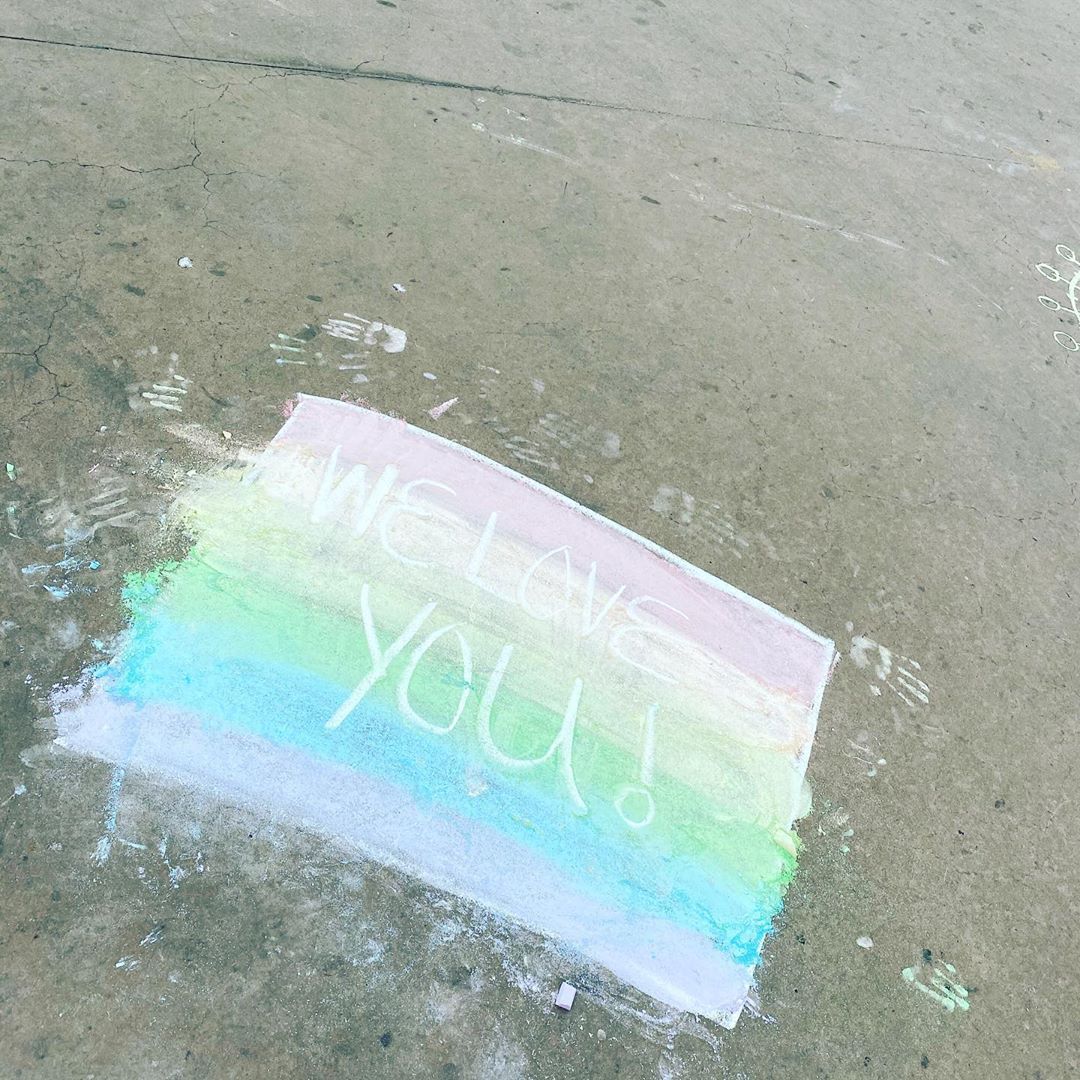 WE LOVE
YOU!